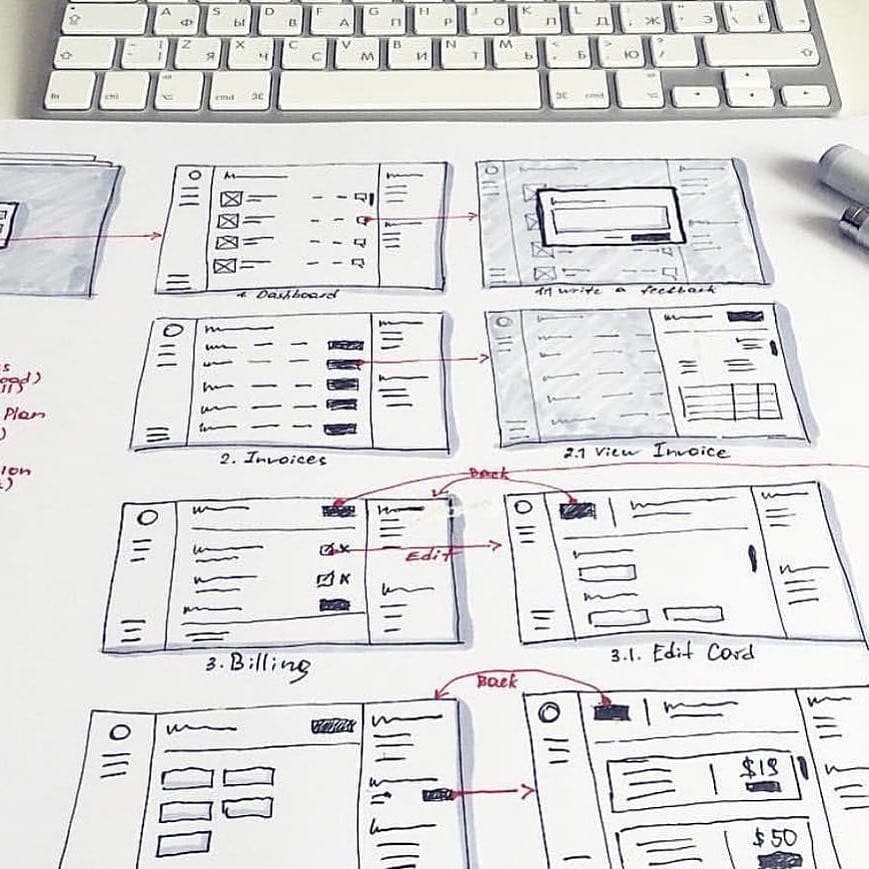 A Ф
S Ы
D В
F А
G П
H Р
J О
K Л
L Д
; Ж
Э
Ё
Z Я
X Ч
C С
V М
B И
N Т
M Ь
Б
Ю
fn
ctrl
cmd ⌘
⌘ cmd
1. Dashboard
1.1 write a feedback
Plan
2. Invoices
2.1 View Invoice
Back
Edit
3. Billing
3.1. Edit Card
Back
$19
$50